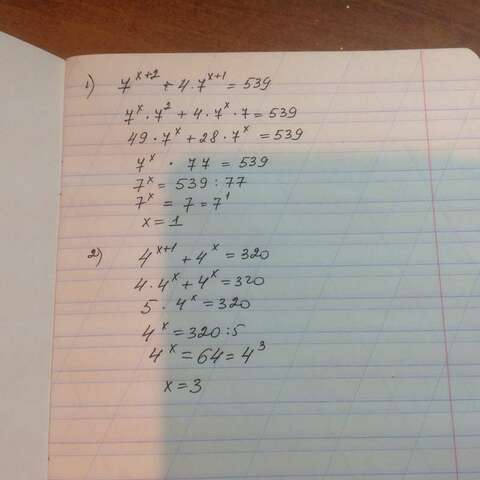 1) 7^{x+2} + 4·7^{x+1} = 539
7^x · 7^2 + 4·7^x · 7 = 539
49 · 7^x + 28 · 7^x = 539
7^x · 77 = 539
7^x = 539 : 77
7^x = 7 = 7^1
x = 1
2) 4^{x+1} + 4^x = 320
4·4^x + 4^x = 320
5 · 4^x = 320
4^x = 320 : 5
4^x = 64 = 4^3
x = 3